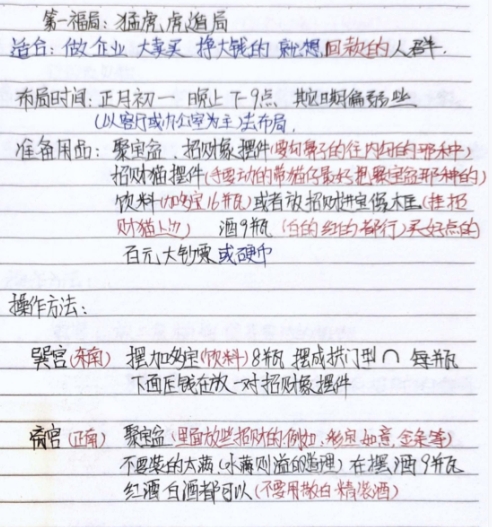 第一福局：猛虎虎道局
适合：做企业 大卖买 挣大钱的 就想回款的人群.
布局时间：正月初一 晚上7-9点 其它日期偏弱些
(以客厅或办公室为主)去布局.
准备用品：聚宝盆、招财象摆件(要勾鼻子的往内勾的那种)
招财猫摆件(手要动的带猫仔最好 把聚宝盆那种的)
饮料(加多宝16瓶)或者放招财进宝像木
财猫上边) 酒9瓶(白的红的都行)买好点的
百元大钞票或硬币
操作方法：
巽宫(东南) 摆加多宝(饮料)8瓶 摆成拱门型∩ 每瓶
下面压钱在放一对招财象摆件
离宫(正南) 聚宝盆(里面放些招财的例如.彩宝如意.金条等)
不要装的太满(水满则溢的道理) 在摆酒9瓶
红酒白酒都可以(不要用散白 精装酒)